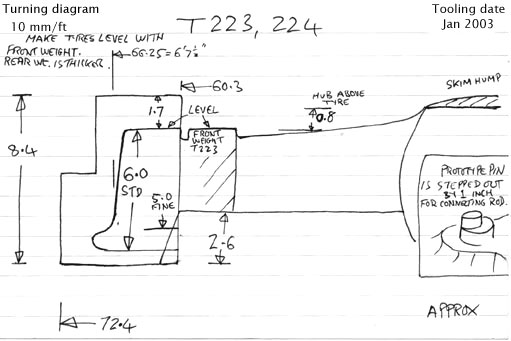 Turning diagram
10 mm/ft
T223, 224
Tooling date
Jan 2003
MAKE TIRES LEVEL WITH
FRONT WEIGHT.
REAR WT. IS THICKER.
66.25 = 6'7½"
60.3
HUB ABOVE
TIRE
0.8
SKIM HUMP
1.7
LEVEL
FRONT
WEIGHT
T223
8.4
6.0
STD
5.0
FINE
2.6
PROTOTYPE PIN
IS STEPPED OUT
BY 1 INCH
FOR CONNECTING ROD.
72.4
APPROX